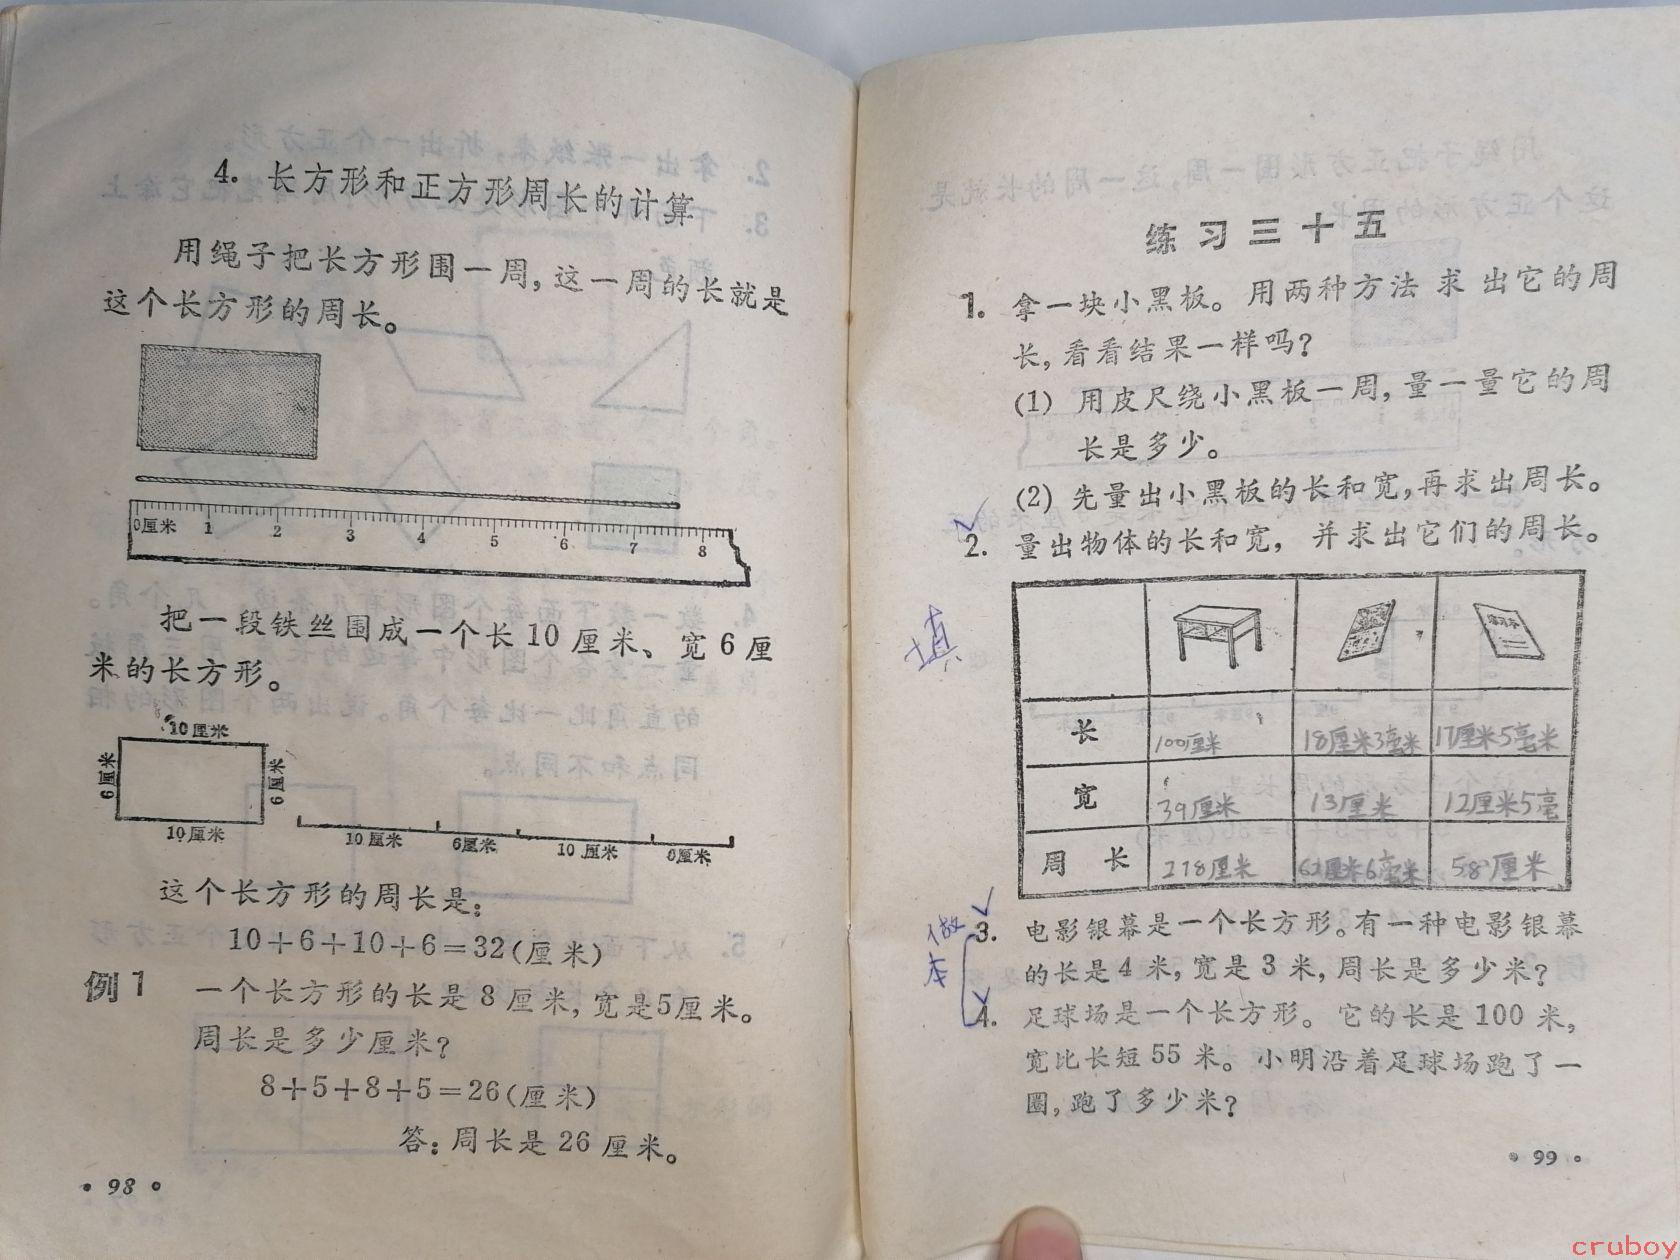 4. 长方形和正方形周长的计算
用绳子把长方形围一周,这一周的长就是
这个长方形的周长。
0厘米 1 2 3 4 5 6 7 8
把一段铁丝围成一个长10厘米、宽6厘
米的长方形。
10厘米
6厘米
6厘米
10厘米
10厘米 6厘米 10厘米 6厘米
这个长方形的周长是:
10+6+10+6=32(厘米)
例1 一个长方形的长是8厘米,宽是5厘米。
周长是多少厘米?
8+5+8+5=26(厘米)
答:周长是26厘米。
• 98 •
练习三十五
1. 拿一块小黑板。用两种方法求出它的周
长,看看结果一样吗?
(1) 用皮尺绕小黑板一周,量一量它的周
长是多少。
(2) 先量出小黑板的长和宽,再求出周长。
2. 量出物体的长和宽,并求出它们的周长。
填
长 100厘米 18厘米3毫米 17厘米5毫米
宽 39厘米 13厘米 12厘米5毫
周长 278厘米 62厘米6毫米 58厘米
做
本
3. 电影银幕是一个长方形。有一种电影银幕
的长是4米,宽是3米,周长是多少米?
4. 足球场是一个长方形。它的长是100米,
宽比长短55米。小明沿着足球场跑了一
圈,跑了多少米?
• 99 •
cruboy